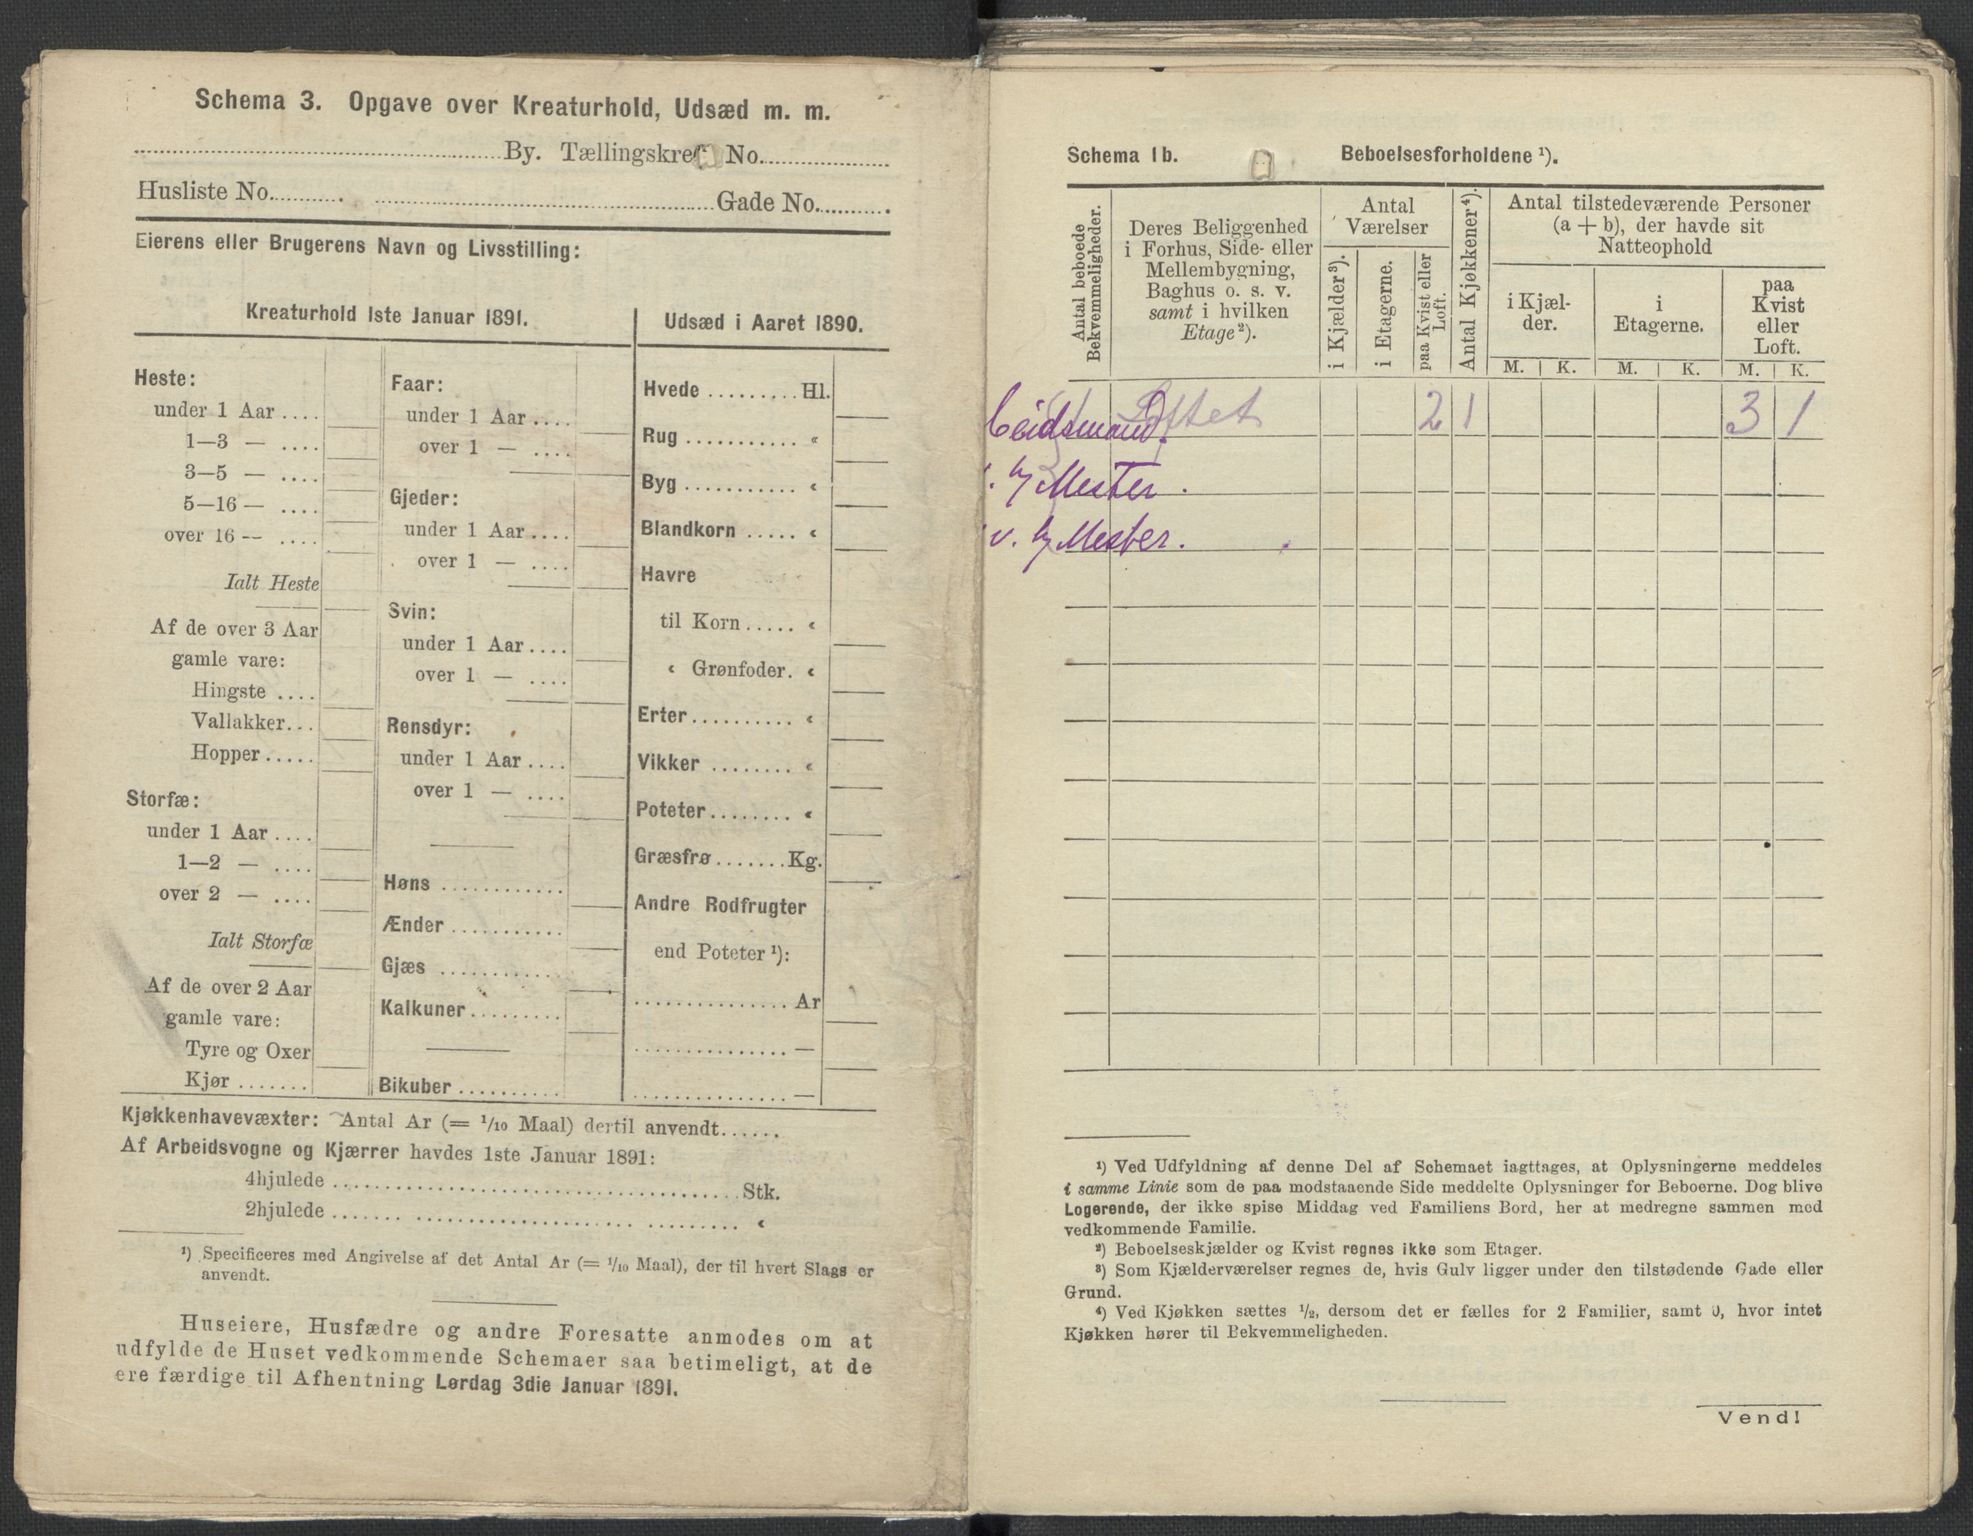 Schema 3. Opgave over Kreaturhold, Udsæd m. m.
By. Tællingskreds No.
Husliste No. Gade No.
Eierens eller Brugerens Navn og Livsstilling:
Kreaturhold 1ste Januar 1891.
Heste:
under 1 Aar ....
1—3 — ....
3—5 — ....
5—16 — ....
over 16 — ....
Ialt Heste
Af de over 3 Aar
gamle vare:
Hingste ....
Vallakker...
Hopper.....
Storfæ:
under 1 Aar ....
1—2 — ....
over 2 — ....
Ialt Storfæ
Af de over 2 Aar
gamle vare:
Tyre og Oxer
Kjør .......
Faar:
under 1 Aar ....
over 1 — ....
Gjeder:
under 1 Aar ....
over 1 — ....
Svin:
under 1 Aar ....
over 1 — ....
Rensdyr:
under 1 Aar ....
over 1 — ....
Høns ............
Ænder ...........
Gjæs ............
Kalkuner.........
Bikuber ..........
Udsæd i Aaret 1890.
Hvede ......... Hl.
Rug ........... "
Byg ........... "
Blandkorn ..... "
Havre
til Korn ..... "
" Grønfoder. "
Erter.......... "
Vikker ........ "
Poteter........ "
Græsfrø.......Kg.
Andre Rodfrugter
end Poteter ¹):
............... Ar
............... —
............... —
Kjøkkenhavevæxter: Antal Ar (= 1/10 Maal) dertil anvendt......
Af Arbeidsvogne og Kjærrer havdes 1ste Januar 1891:
4hjulede ........................................ Stk.
2hjulede ........................................ "
¹) Specificeres med Angivelse af det Antal Ar (= 1/10 Maal), der til hvert Slags er
anvendt.
Huseiere, Husfædre og andre Foresatte anmodes om at
udfylde de Huset vedkommende Schemaer saa betimeligt, at de
ere færdige til Afhentning Lørdag 3die Januar 1891.
Schema 1b. Beboelsesforholdene ¹).
Antal beboede
Bekvemmeligheder.
Deres Beliggenhed
i Forhus, Side- eller
Mellembygning,
Baghus o. s. v.
samt i hvilken
Etage ²).
Antal
Værelser
i Kjælder ³).
i Etagerne.
paa Kvist eller
Loft.
Antal Kjøkkener ⁴).
Antal tilstedeværende Personer
(a + b), der havde sit
Natteophold
i Kjæl-
der.
i
Etagerne.
paa
Kvist
eller
Loft.
M. K. M. K. M. K.
Loftet 2 1 3 1
Mester.
v. Mester.
¹) Ved Udfyldning af denne Del af Schemaet iagttages, at Oplysningerne meddeles
i samme Linie som de paa modstaaende Side meddelte Oplysninger for Beboerne. Dog blive
Logerende, der ikke spise Middag ved Familiens Bord, her at medregne sammen med
vedkommende Familie.
²) Beboelseskjælder og Kvist regnes ikke som Etager.
³) Som Kjælderværelser regnes de, hvis Gulv ligger under den tilstødende Gade eller
Grund.
⁴) Ved Kjøkken sættes 1/2, dersom det er fælles for 2 Familier, samt 0, hvor intet
Kjøkken hører til Bekvemmeligheden.
Vend!